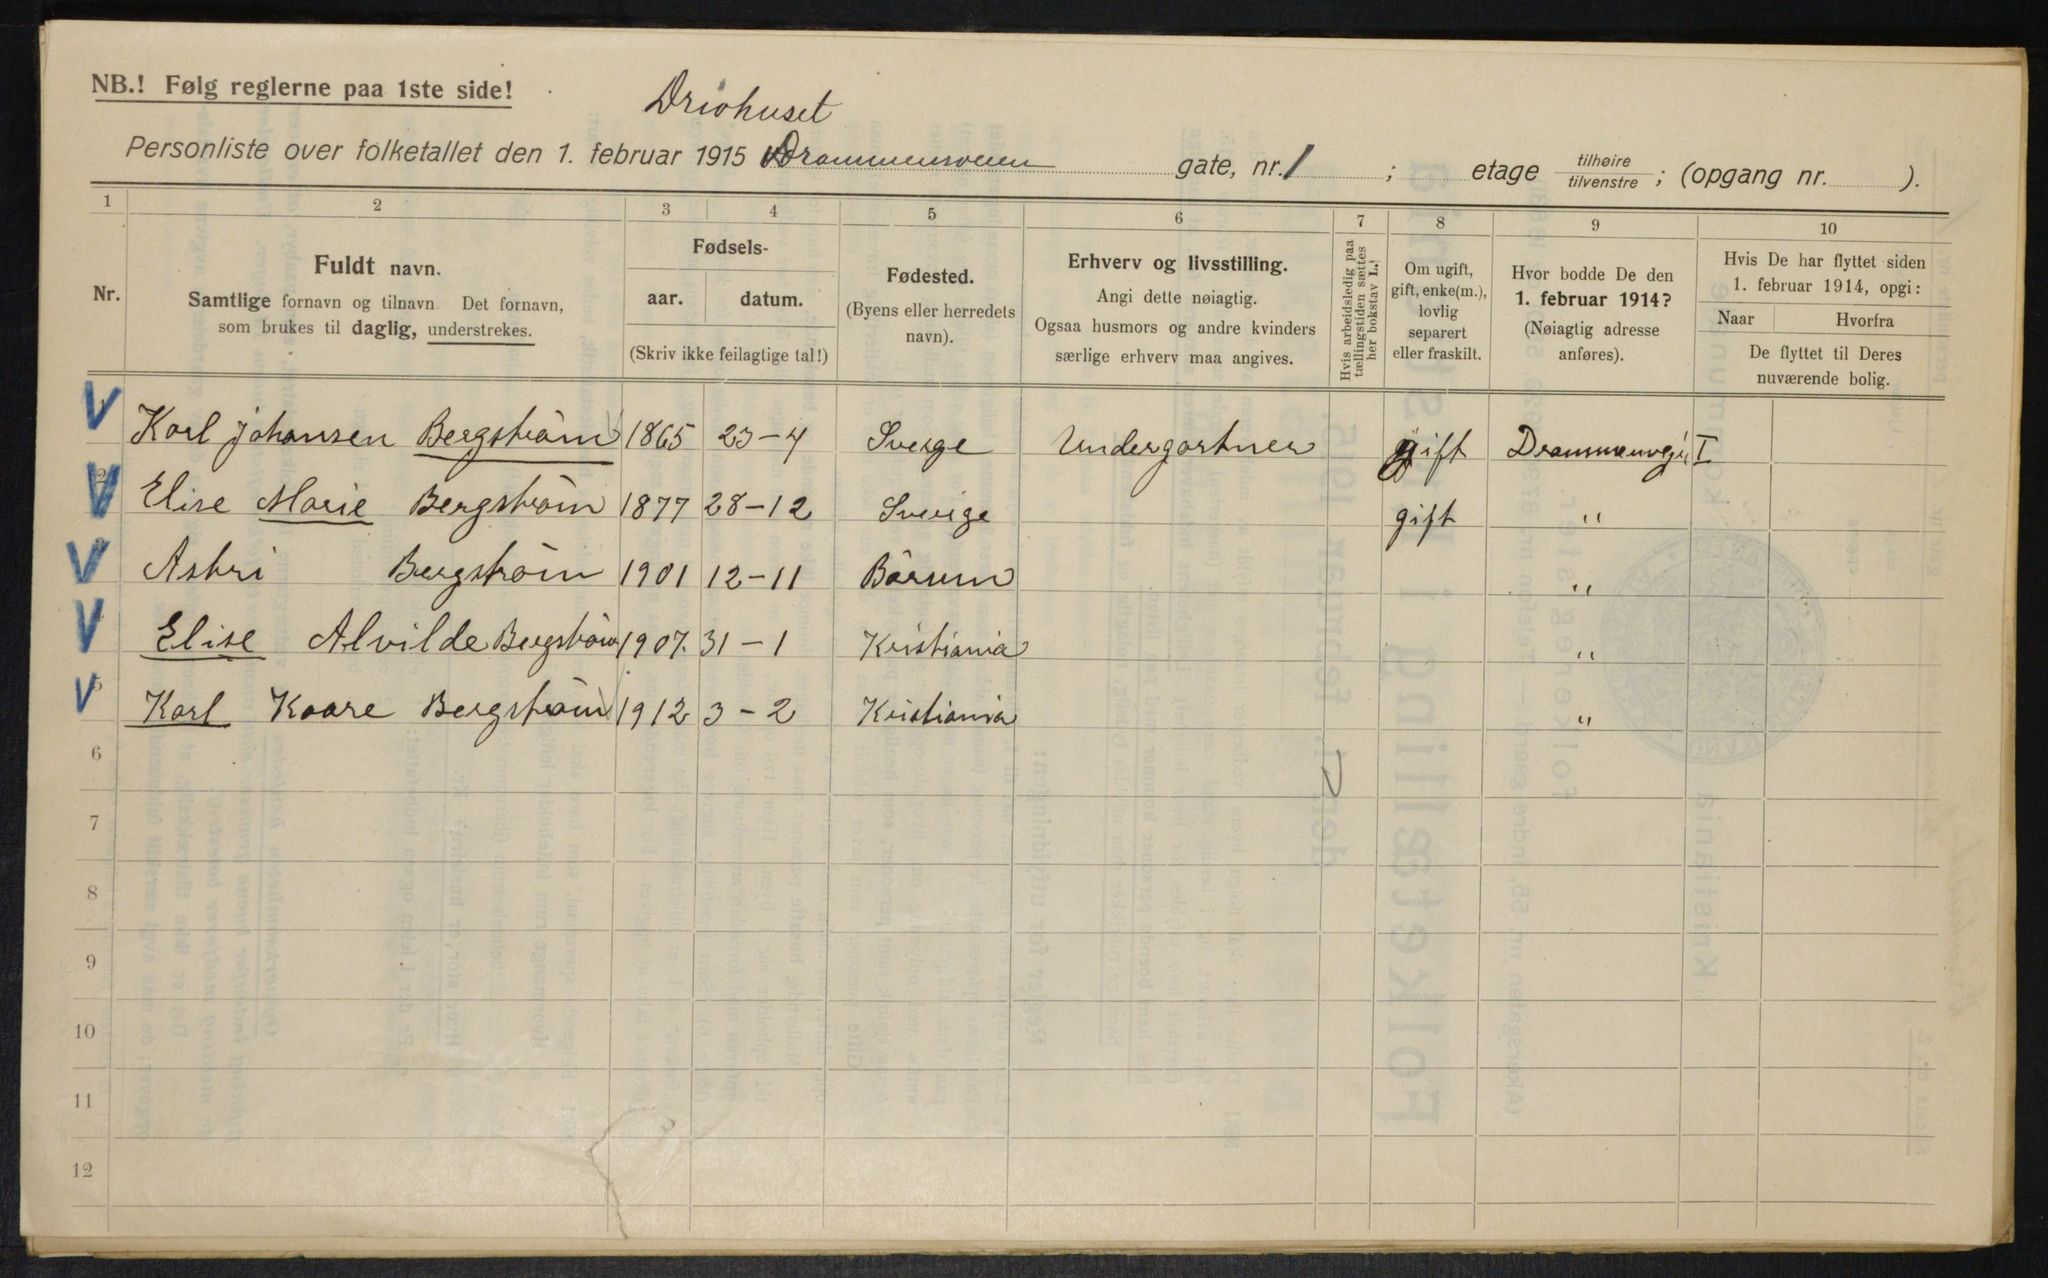 NB.! Følg reglerne paa 1ste side!
Drivhuset
Personliste over folketallet den 1. februar 1915 Drammensveien gate, nr. 1 ; etage tilhøire / tilvenstre ; (opgang nr. ).
1 2 3 4 5 6 7 8 9 10
Nr.
Fuldt navn.
Samtlige fornavn og tilnavn. Det fornavn,
som brukes til daglig, understrekes.
Fødsels-
aar. datum.
(Skriv ikke feilagtige tal!)
Fødested.
(Byens eller herredets
navn).
Erhverv og livsstilling.
Angi dette nøiagtig.
Ogsaa husmors og andre kvinders
særlige erhverv maa angives.
Hvis arbeidsledig paa
tællingstiden sættes
her bokstav L.!
Om ugift,
gift, enke(m.),
lovlig
separert
eller fraskilt.
Hvor bodde De den
1. februar 1914?
(Nøiagtig adresse
anføres).
Hvis De har flyttet siden
1. februar 1914, opgi:
Naar Hvorfra
De flyttet til Deres
nuværende bolig.
Karl Johansen Bergström 1865 23-4 Sverge Undergartner gift Drammenvejn I
2 Elise Marie Bergström 1877 28-12 Sverige gift "
Astri Bergström 1901 12-11 Bärum "
Elise Alvilde Bergström 1907. 31-1 Kristiania "
5 Karl Kaare Bergström 1912 3-2 Kristiania "
6
7
8
9
10
11
12